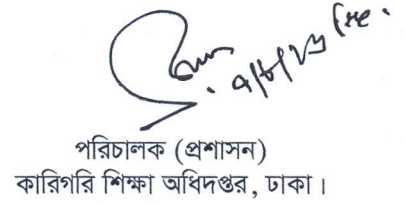 পরিচালক (প্রশাসন)
কারিগরি শিক্ষা অধিদপ্তর, ঢাকা।